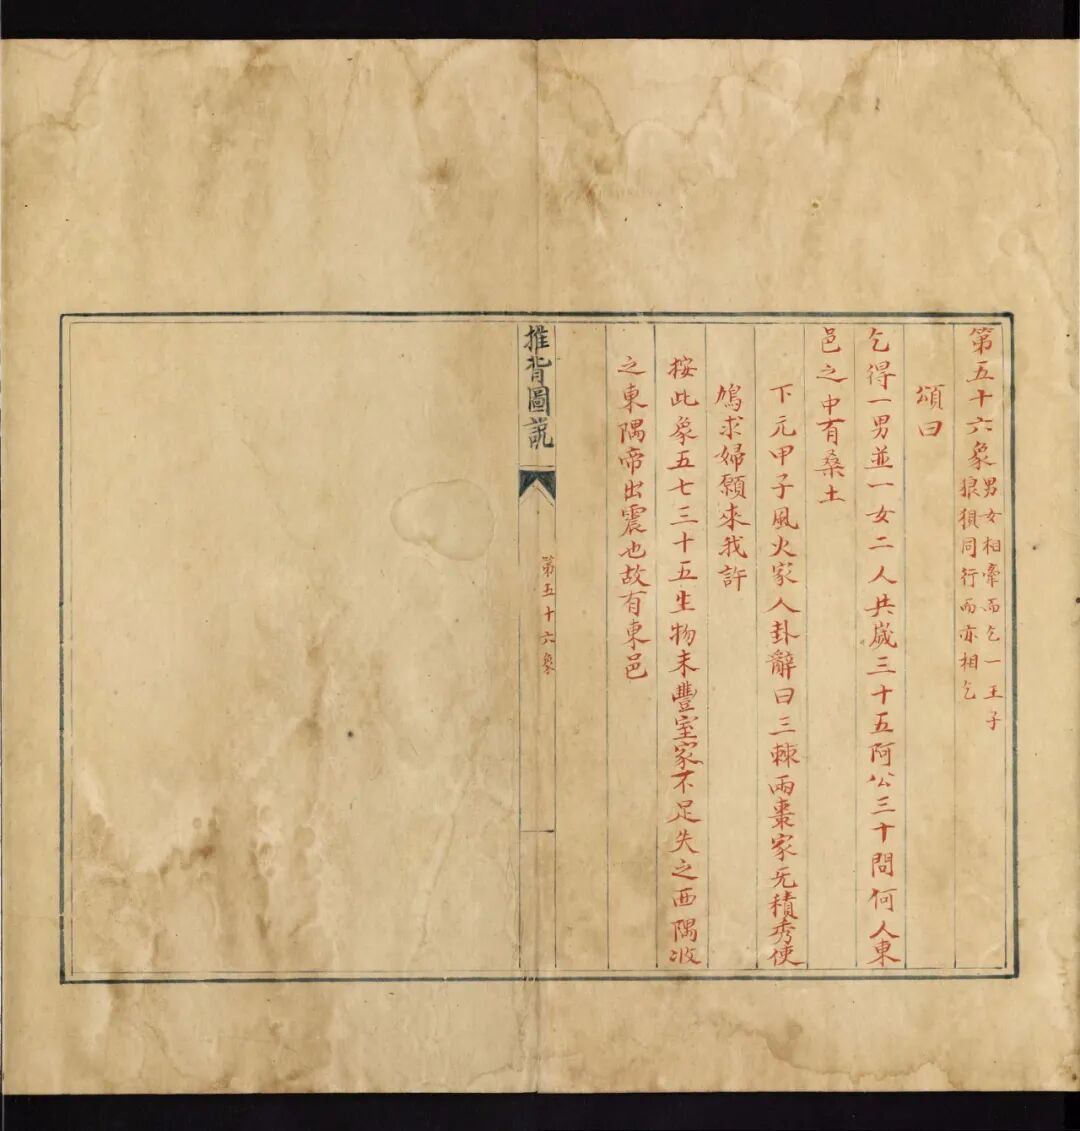 第五十六象
男女相牽而乞一王子
狼狽同行而亦相乞
頌曰
乞得一男並一女二人共歲三十五阿公三十問何人東
邑之中有桑土
下元甲子風火家人卦辭曰三棘兩棗家无積秀使
鳩求婦願來我許
按此象五七三十五生物未豐室家不足失之西隅收
之東隅帝出震也故有東邑
推背圖說
第五十六象